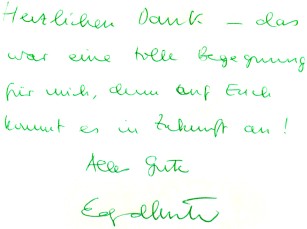 Herzlichen Dank – das
war eine tolle Begegnung
für mich, denn auf Euch
kommt es in Zukunft an!
Alles Gute